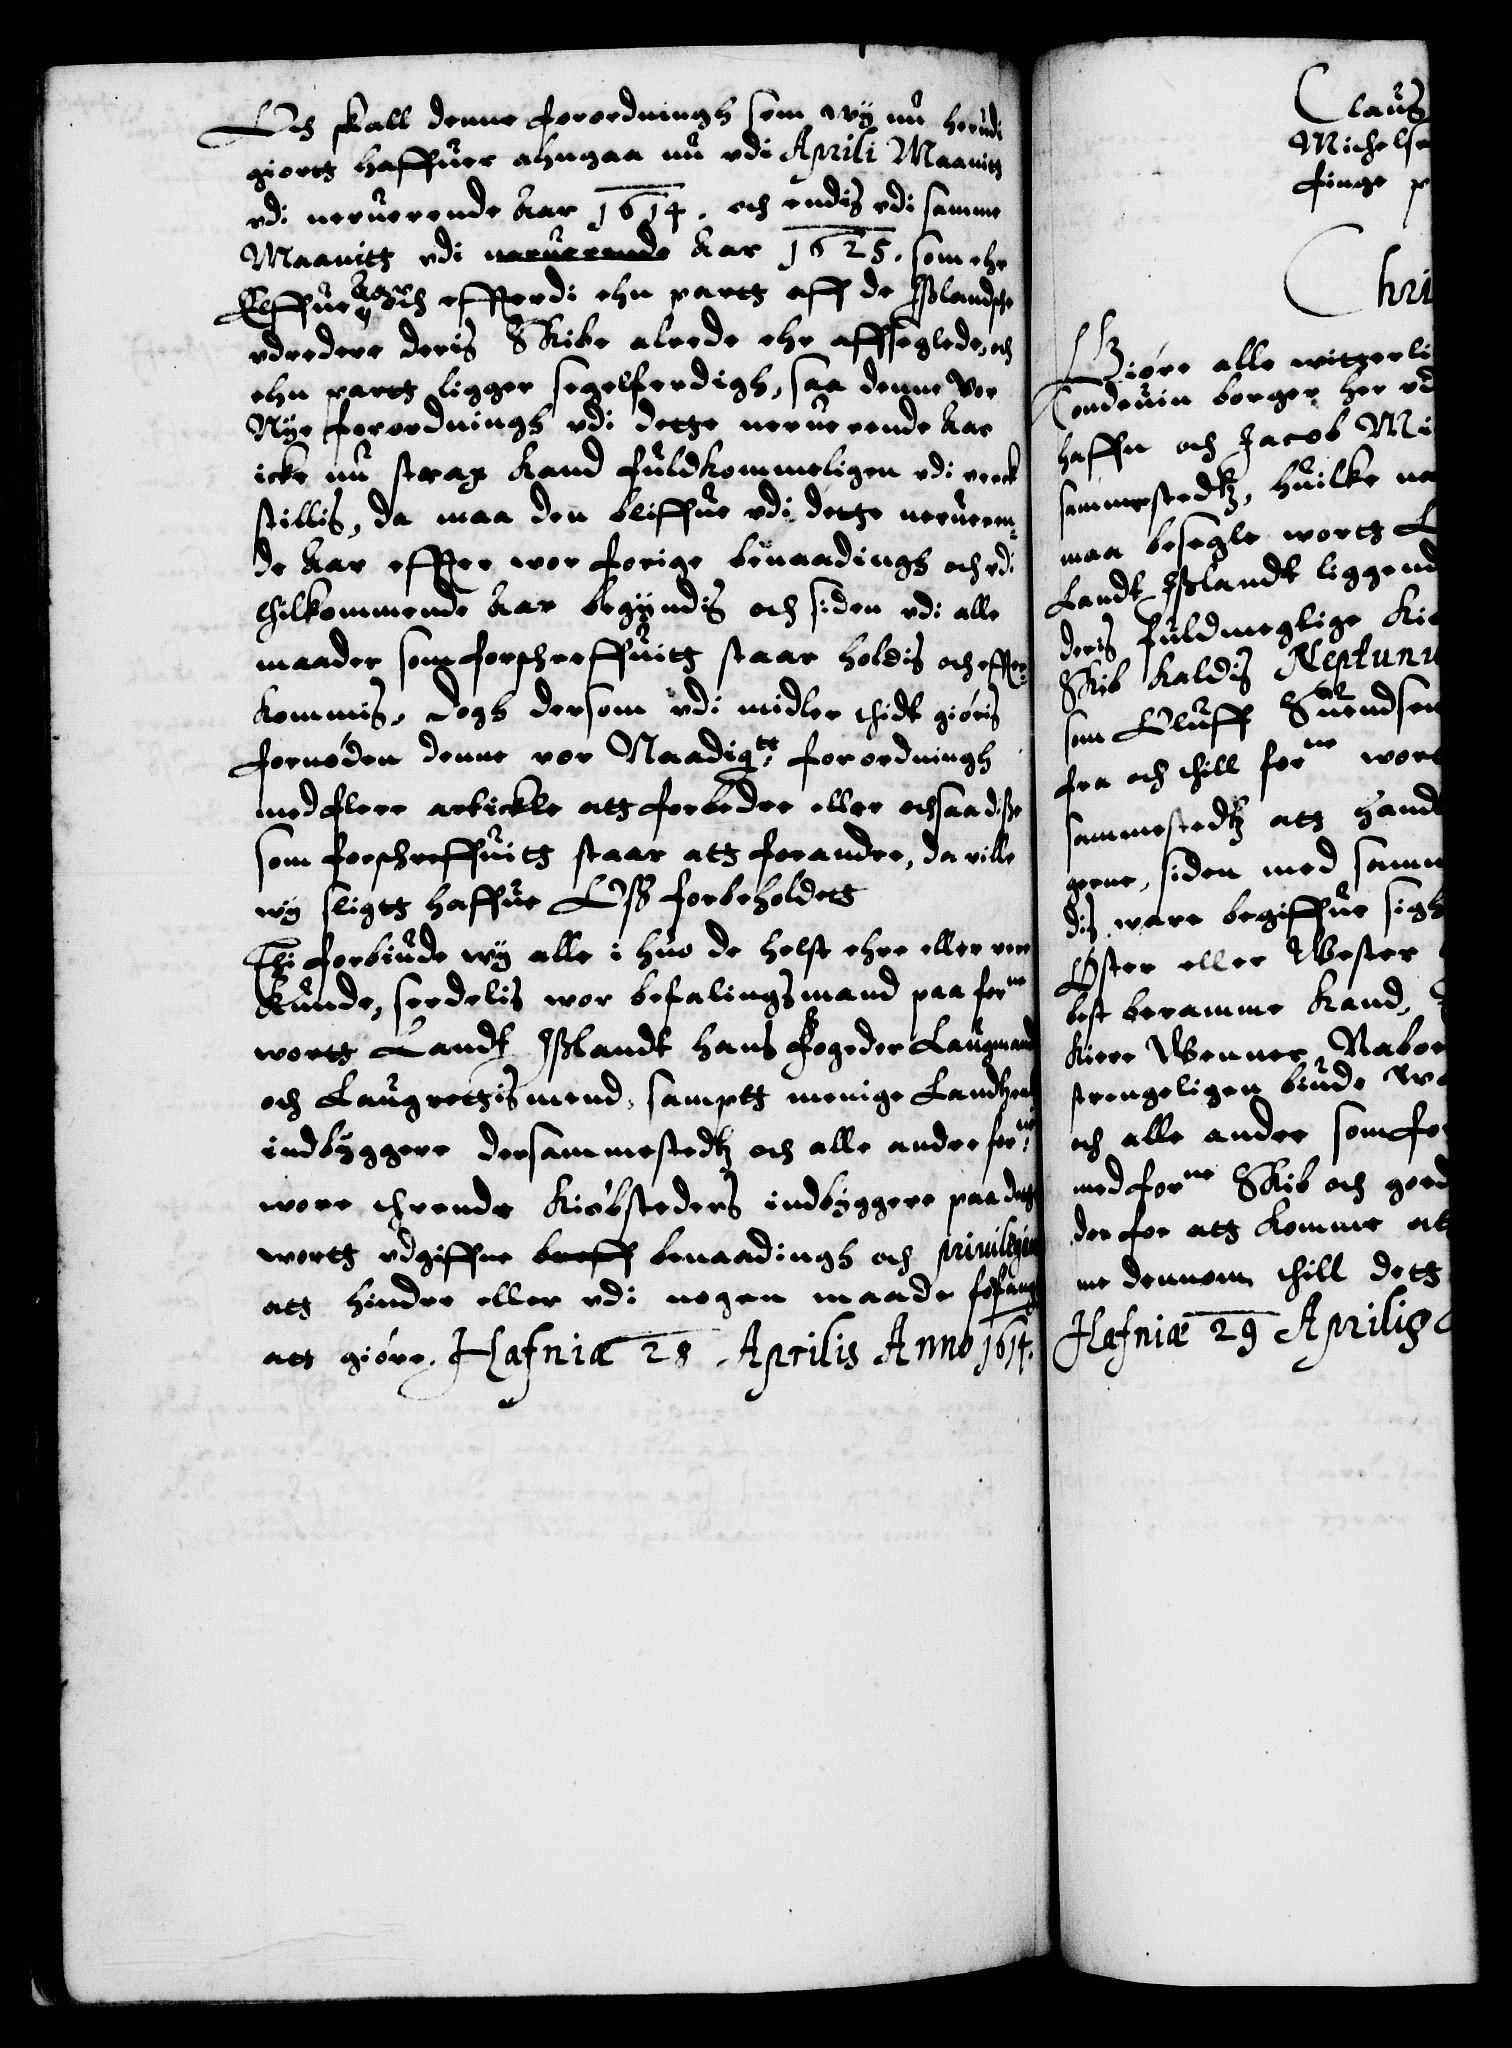 Och skall denne forordningh som wy nu herudi
giortt haffuer ahngaa nu udi Aprili Maanitt
udi neruerende Aar 1614. och endis udi samme
Maanitt udi neruerende Aar 1625. som ehr
Elleffue Aar Och efftterdi ehn partt aff de Jßlandsche
udredere deris Skibe alrede ehr affseglede, och
ehn partt ligger segelferdigh, saa denne Vor
Nye forordningh udi dette neruerende Aar
icke nu strax Kand fuldkommeligen udi verck
stillis, da maa den bliffue udi dette nerueren-
de Aar effter wor forige benaadingh och udi
thilkommende Aar begyndis och siden udi alle
maader som forschreffuitt staar holdis och effter-
kommis, Dogh dersom udi midler thidt giøris
fornøden denne vor Naadigtt forordningh
med flere artickle att forbedre eller ochsaa diße
som forschreffuitt staar att forandre, da ville
wy sligtt haffue Oß forbeholdett
Thi forbiude wy alle i huo de helst ehre eller vere
Kunde, serdelis wor befalingsmand paa forne
wortt Landt Jßlandt hans fogeder Laugmand
och Laugrettismend, samptt menige Landtzens
indbyggere dersammestedtz och alle andre forne
wore thrende Kiøbsteders indbyggere paa dette
wortt udgiffne breff benaadingh och privilegium
att hindre eller udi nogen maade forfang
att giøre. Hafniæ 28 Aprilis Anno 1614.
Claus
Michelse
finge p
Chri
Giøre alle witterli
Condeuin borger her ud
haffn och Jacob Mi
sammestedtz, huilke na
maa besegle wortt
Landt Jßlandt liggend
deris fuldmeglige
Skib Kaldis Neptunu
som Oluff Suendsen
fra och thill forne wort
sammestedtz att hand
gerne, siden med samme
dis ware begiffue sigh
Øster eller Wester
best beramme Kand,
Kiere Wenner Naboe
strengeligen biude
och alle andre som for
med forne Skib och goed
der for att komme att
me dennom thill dett
Hafniæ 29 Aprilis